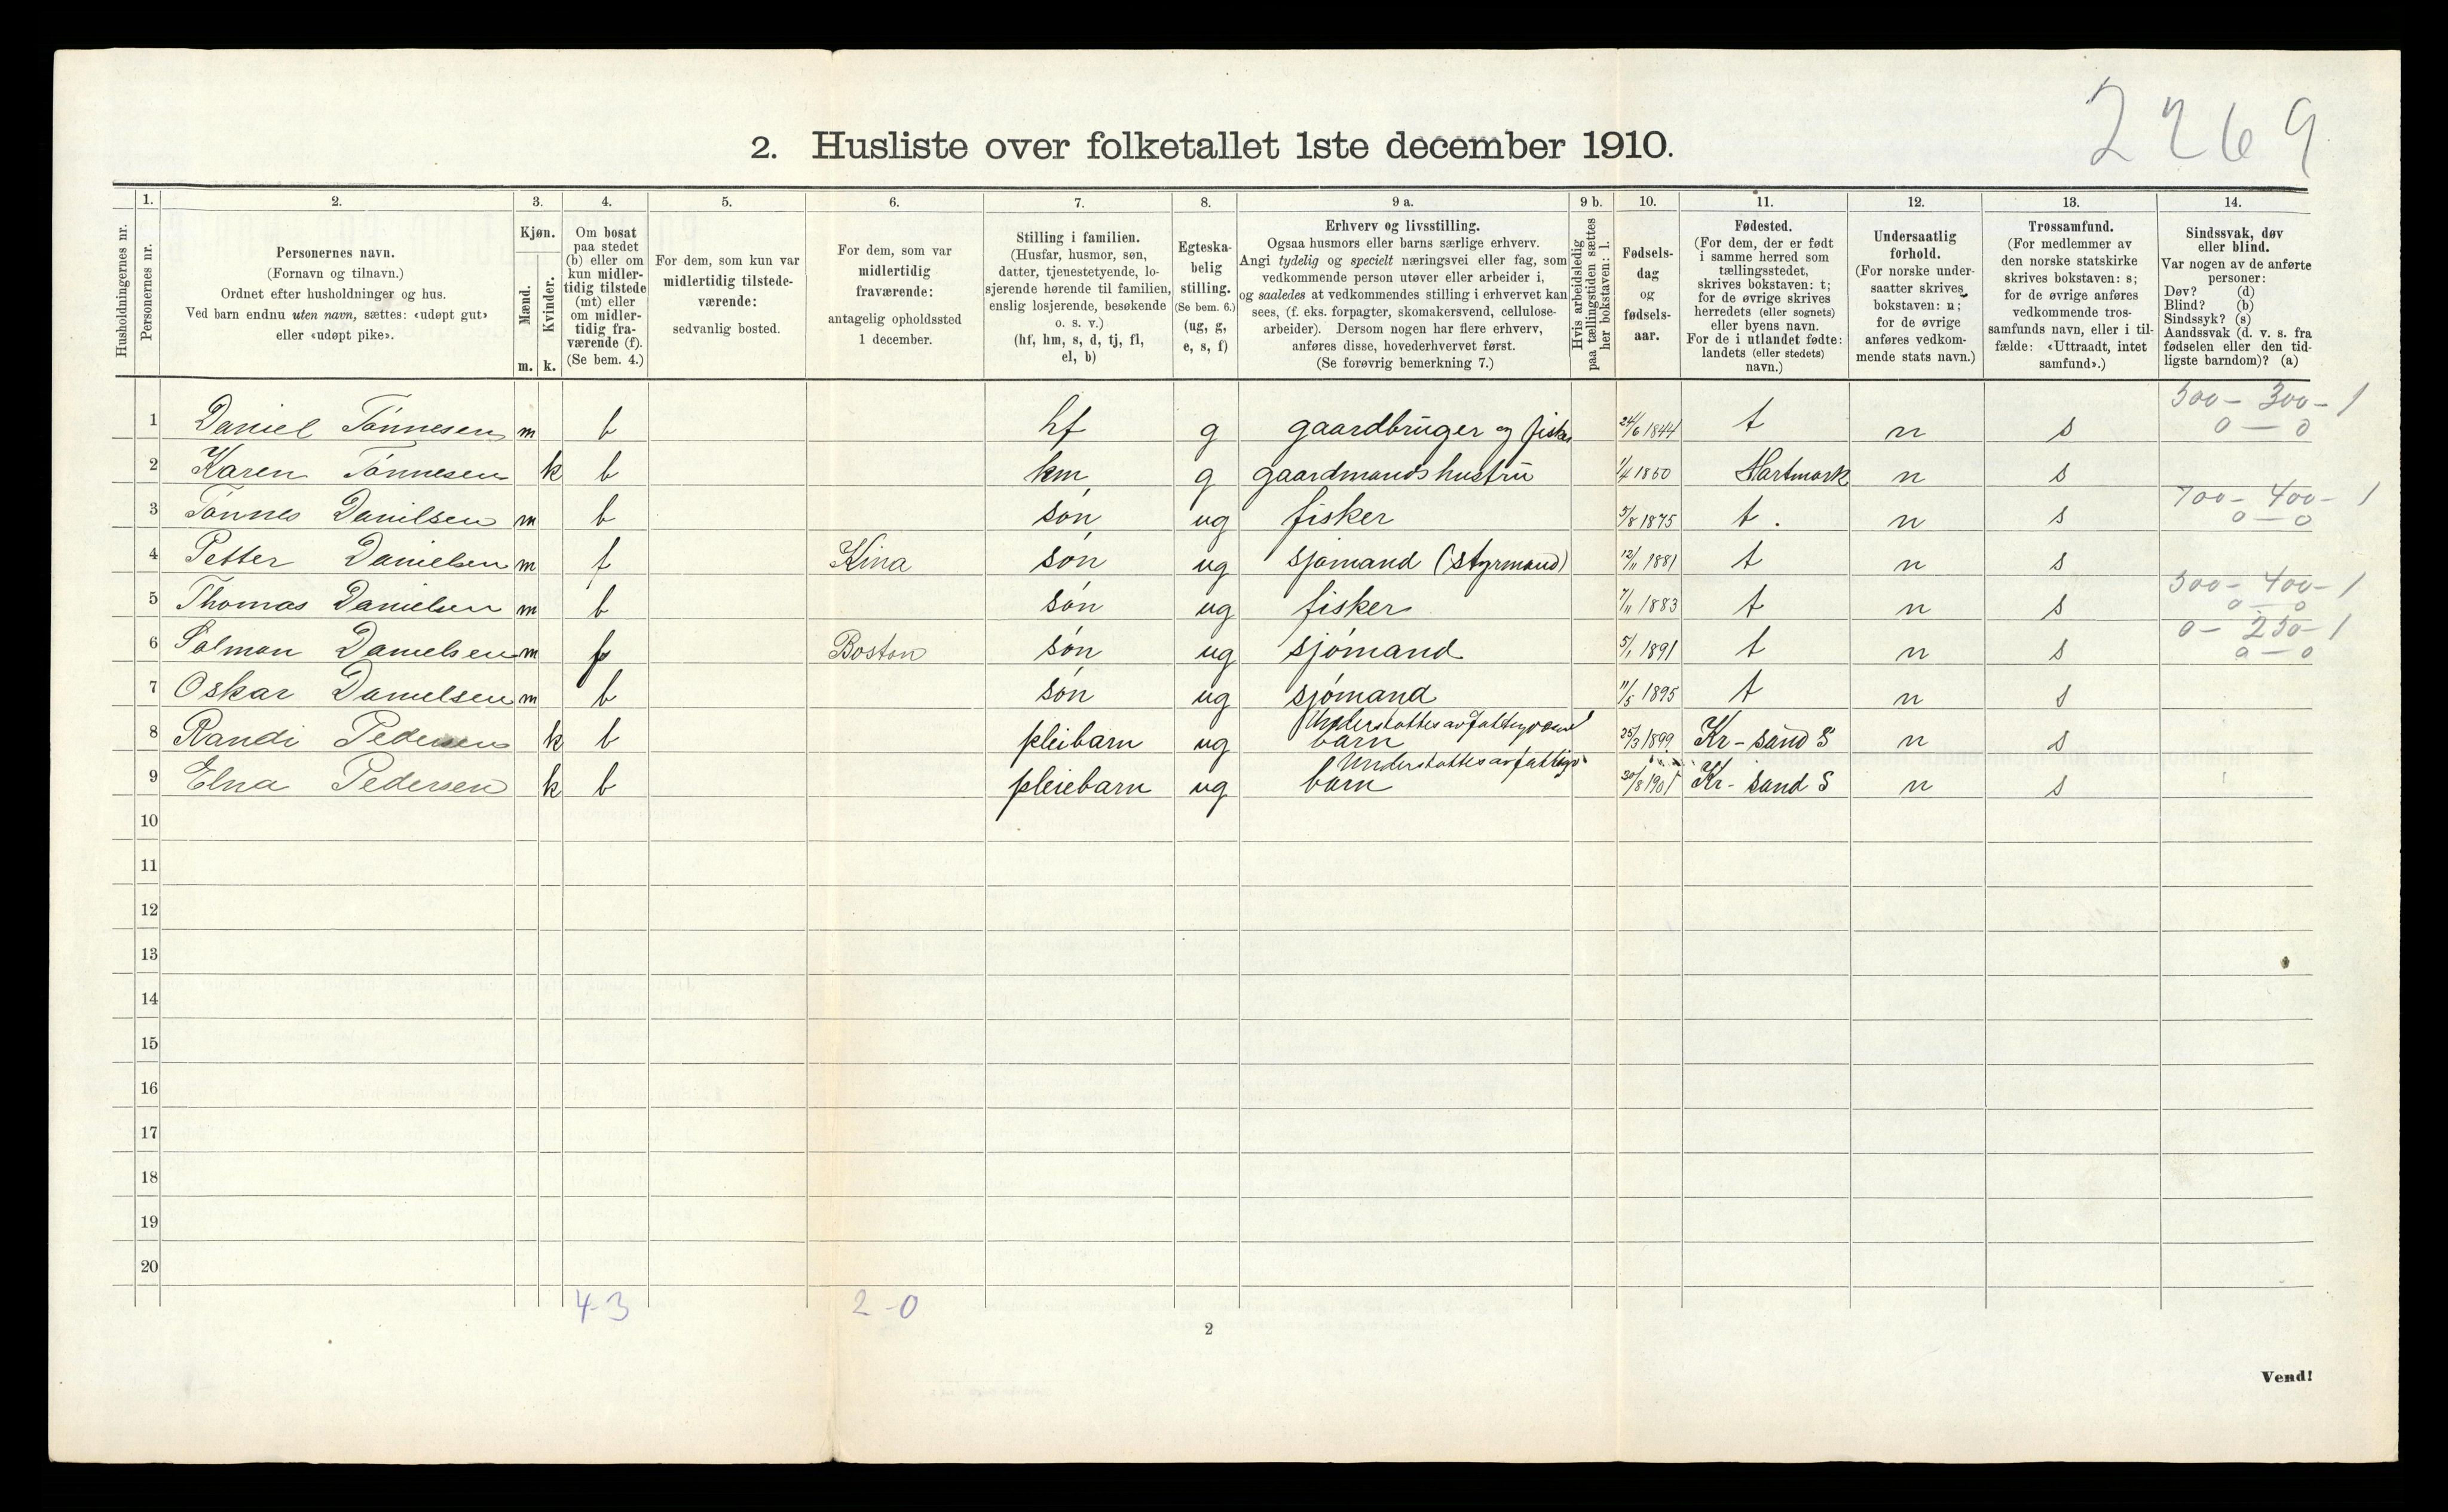 2269
2. Husliste over folketallet 1ste december 1910.
Husholdningernes nr.
1.
Personernes nr.
2.
Personernes navn.
(Fornavn og tilnavn.)
Ordnet efter husholdninger og hus.
Ved barn endnu uten navn, sættes: «udøpt gut»
eller «udøpt pike».
3.
Kjøn.
Mænd.
Kvinder.
m. k.
4.
Om bosat
paa stedet
(b) eller om
kun midler-
tidig tilstede
(mt) eller
om midler-
tidig fra-
værende (f).
(Se bem. 4.)
5.
For dem, som kun var
midlertidig tilstede-
værende:
sedvanlig bosted.
6.
For dem, som var
midlertidig
fraværende:
antagelig opholdssted
1 december.
7.
Stilling i familien.
(Husfar, husmor, søn,
datter, tjenestetyende, lo-
sjerende hørende til familien,
enslig losjerende, besøkende
o. s. v.)
(hf, hm, s, d, tj, fl,
el, b)
8.
Egteska-
belig
stilling.
(Se bem. 6.)
(ug, g,
e, s, f)
9 a.
Erhverv og livsstilling.
Ogsaa husmors eller barns særlige erhverv.
Angi tydelig og specielt næringsvei eller fag, som
vedkommende person utøver eller arbeider i,
og saaledes at vedkommendes stilling i erhvervet kan
sees, (f. eks. forpagter, skomakersvend, cellulose-
arbeider). Dersom nogen har flere erhverv,
anføres disse, hovederhvervet først.
(Se forøvrig bemerkning 7.)
9 b.
Hvis arbeidsledig
paa tællingstiden sættes
her bokstaven: l.
10.
Fødsels-
dag
og
fødsels-
aar.
11.
Fødested.
(For dem, der er født
i samme herred som
tællingsstedet,
skrives bokstaven: t;
for de øvrige skrives
herredets (eller sognets)
eller byens navn.
For de i utlandet fødte:
landets (eller stedets)
navn.)
12.
Undersaatlig
forhold.
(For norske under-
saatter skrives
bokstaven: n;
for de øvrige
anføres vedkom-
mende stats navn.)
13.
Trossamfund.
(For medlemmer av
den norske statskirke
skrives bokstaven: s;
for de øvrige anføres
vedkommende tros-
samfunds navn, eller i til-
fælde: «Uttraadt, intet
samfund».)
14.
Sindssvak, døv
eller blind.
Var nogen av de anførte
personer:
Døv? (d)
Blind? (b)
Sindssyk? (s)
Aandssvak (d. v. s. fra
fødselen eller den tid-
ligste barndom)? (a)
500- 300- 1
1 Daniel Tónnesen m b hf g gaardbruger og fisker 24/6 1844 t n s 0 — 0
2 Karen Tónnesen k b km g gaardmands hustru 1/4 1850 Hartmark n s
700- 400- 1
3 Tónnes Danilsen m b són ug fisker 5/8 1875 t. n s 0 — 0
4 Petter Danielsen m f Kina són ug sjómand (styrmand) 12/11 1881 t n s
500- 400- 1
5 Thomas Danielsen m b són ug fisker 7/11 1883 t n s 0 — 0
0- 250- 1
6 Salmon Danielsen m f Boston són ug sjómand 5/1 1891 t n s 0 — 0
7 Oskar Danielsen m b són ug sjómand 11/5 1895 t n s
Understøttes av
8 Randi Pedersen k b pleibarn ug barn 25/3 1899 Kr-sand S n s
Understøttes av fattigv.
9 Elna Pedersen k b pleiebarn ug barn 30/8 1901 Kr-sand S n s
10
11
12
13
14
15
16
17
18
19
20
4-3 2-0
2
Vend!